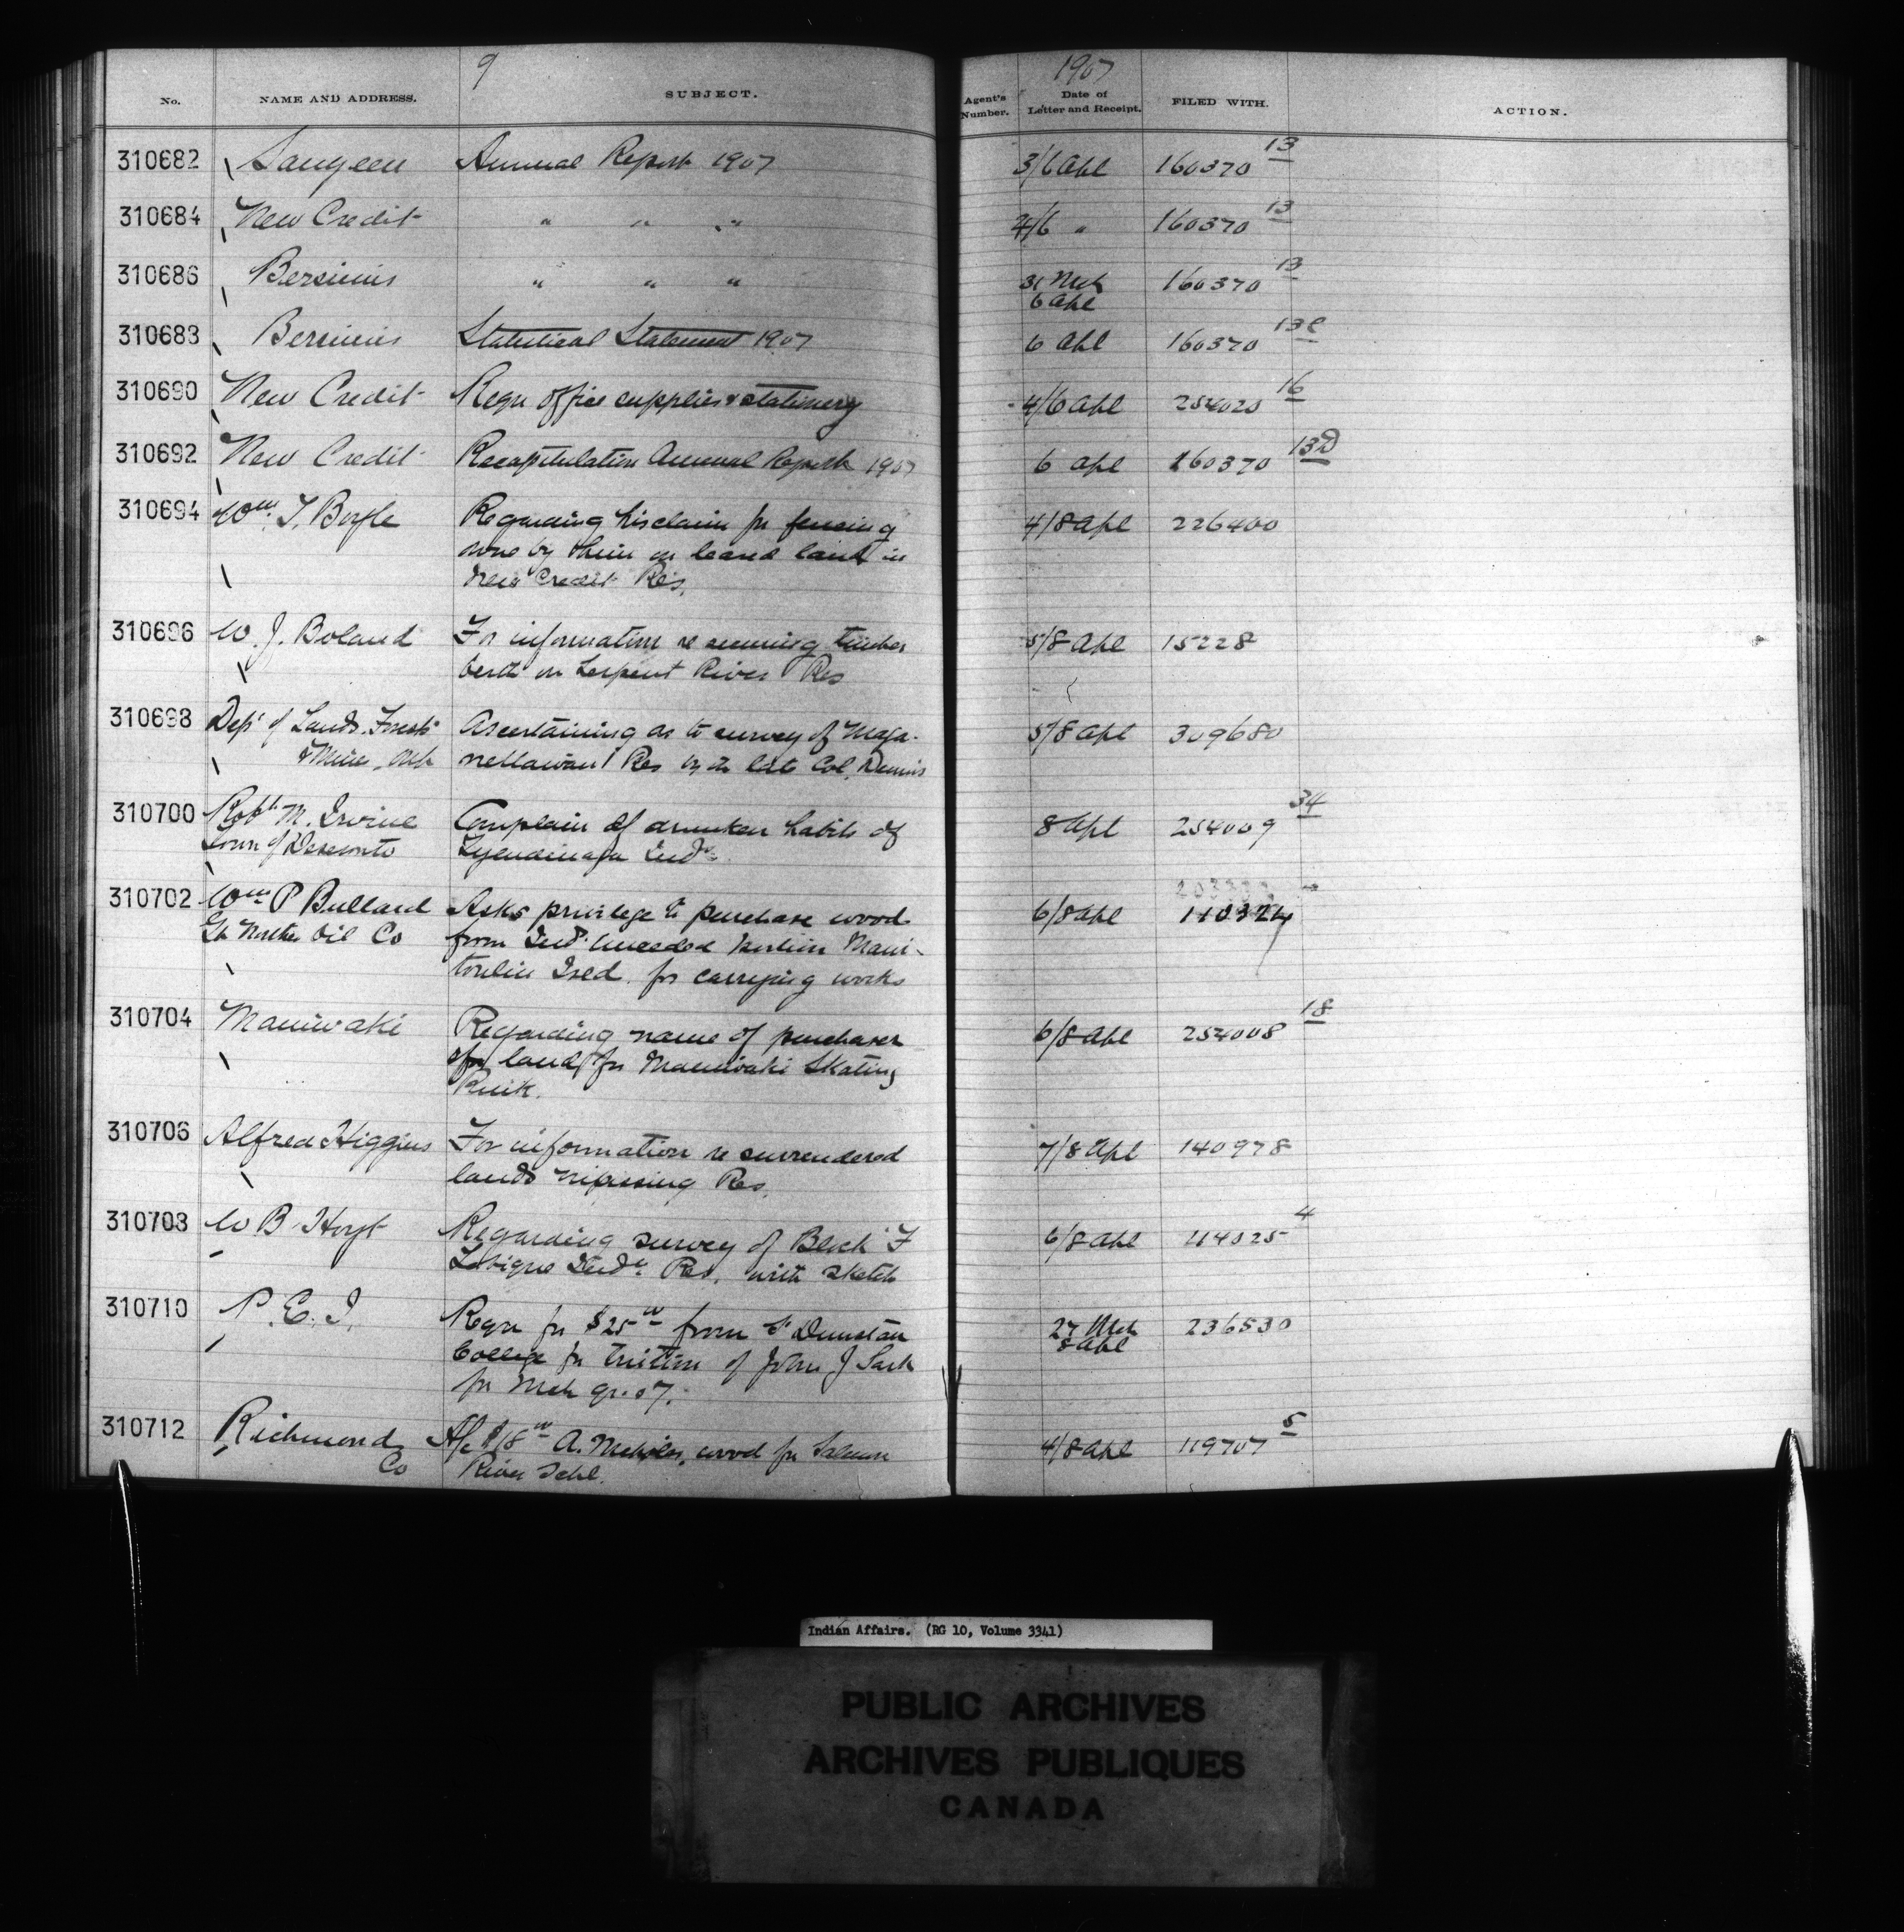 9
1907
No. NAME AND ADDRESS. SUBJECT. Agent's Number. Date of Letter and Receipt. FILED WITH. ACTION.
310682 Saugeen Annual Report 1907 3/6 Apl 160370 13
310684 New Credit " " " 4/6 " 160370 13
310686 Bersimis " " " 31 Mch 160370 13
6 Apl
310688 Bersimis Statistical Statement 1907 6 Apl 160370 13C
310690 New Credit Requ office supplies & stationery 4/6 Apl 254020 16
310692 New Credit Recapitulation Annual Report 1907 6 Apl 160370 13D
310694 Wm. T. Boyle Regarding his claim for fencing 4/8 Apl 226400
done by them on leased land in
New Credit Res.
310696 W. J. Boland For information re running timber 5/8 Apl 15228
berth on Serpent River Res
310698 Dept of Lands, Forests Ascertaining as to survey of Maga- 5/8 Apl 309680
& Mines, Ont nettawan Res by the late Col. Dennis
310700 Robt M. Irvine Complain of drunken habits of 8 Apl 254009 34
Town of Deseronto Tyendinaga Inds.
310702 Wm P Bullard Asks privilege to purchase wood 6/8 Apl 110324
Gt Northn Oil Co from Inds unceded portion Mani-
toulin Isld. for carrying works
310704 Maniwaki Regarding name of purchaser 6/8 Apl 254008 18
of land for Maniwaki Skating
Rink.
310706 Alfred Higgins For information re surrendered 7/8 Apl 140978
lands Nipissing Res.
310708 W B Hoyt Regarding survey of Block F 6/8 Apl 114025 4
Tobique Indn Res. with sketch
310710 P. E. I. Requ for $25 00 from St Dunstan 27 Mch 236530
College for tuition of John J Sark 8 Apl
for Mch qr. 07.
310712 Richmond A/c $18 00 A. wood for Salmon 4/8 Apl 119707 5
Co River Schl.
Indian Affairs. (RG 10, Volume 3341)
PUBLIC ARCHIVES
ARCHIVES PUBLIQUES
CANADA